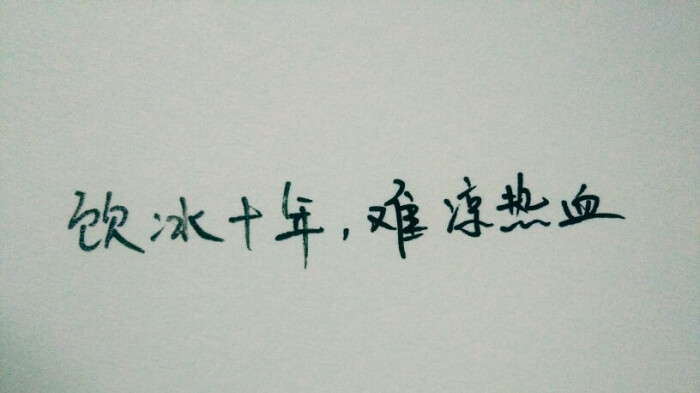 饮冰十年，难凉热血